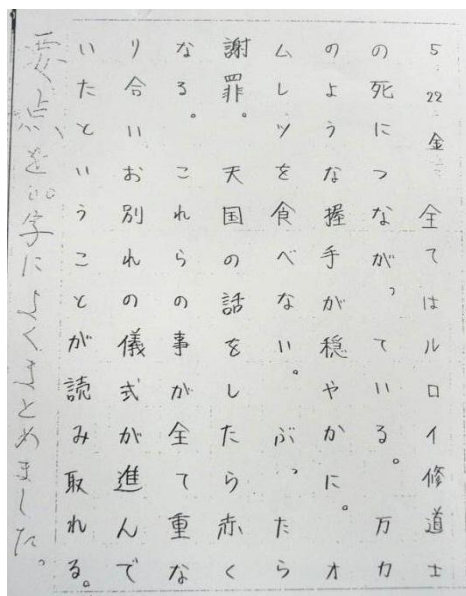 5.22金 全てはルロイ修道士
の死につながっている。万力
のような握手が穏やかに。オ
ムレツを食べない。ぶったら
謝罪。天国の話をしたら赤く
なる。これらの事が全て重な
り合いお別れの儀式が進んで
いたということが読み取れる。
要点を100字によくまとめました。